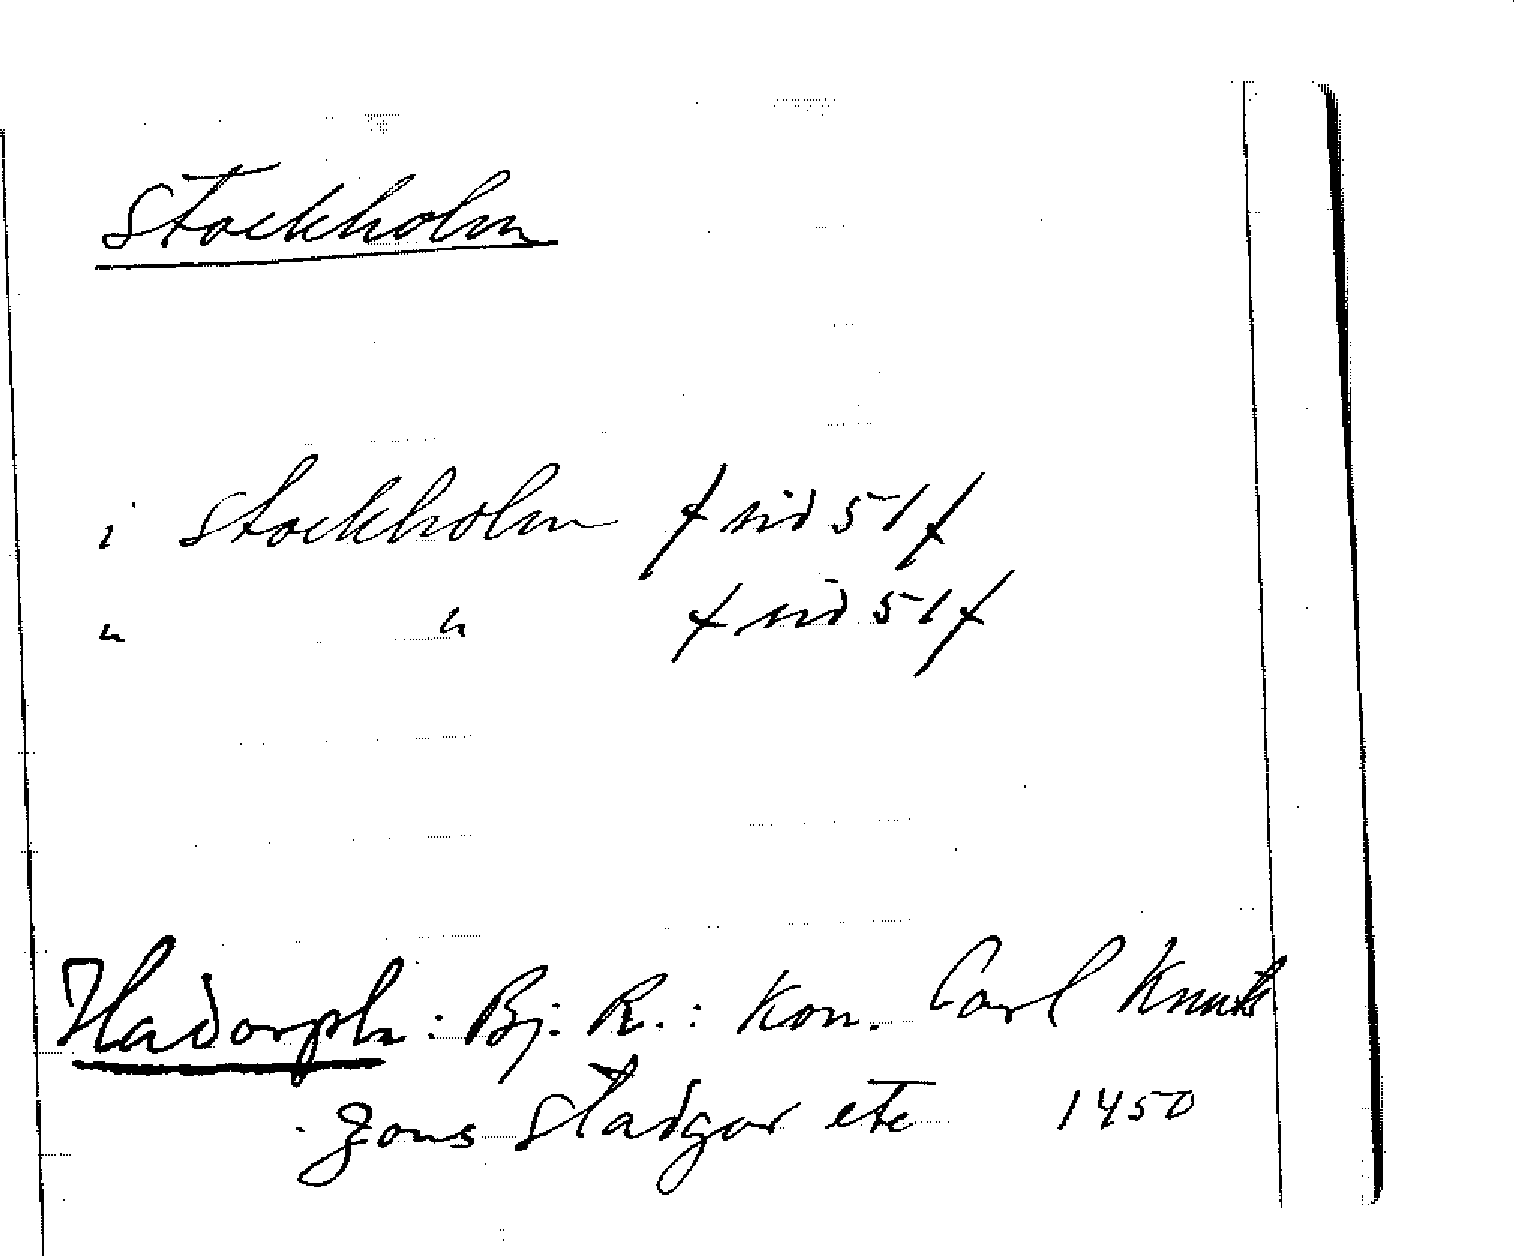 Stockholm
i Stockholm / sid 51 /
" " / sid 51 /
Hadorph: Bj. R.: Kon. Carl Knuts
zons Stadgar etc 1450